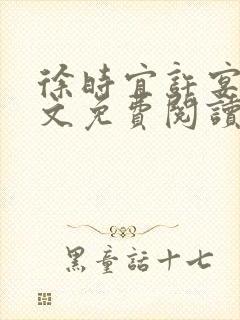 徐時宜許宴
文免費閱讀
黑童話十七